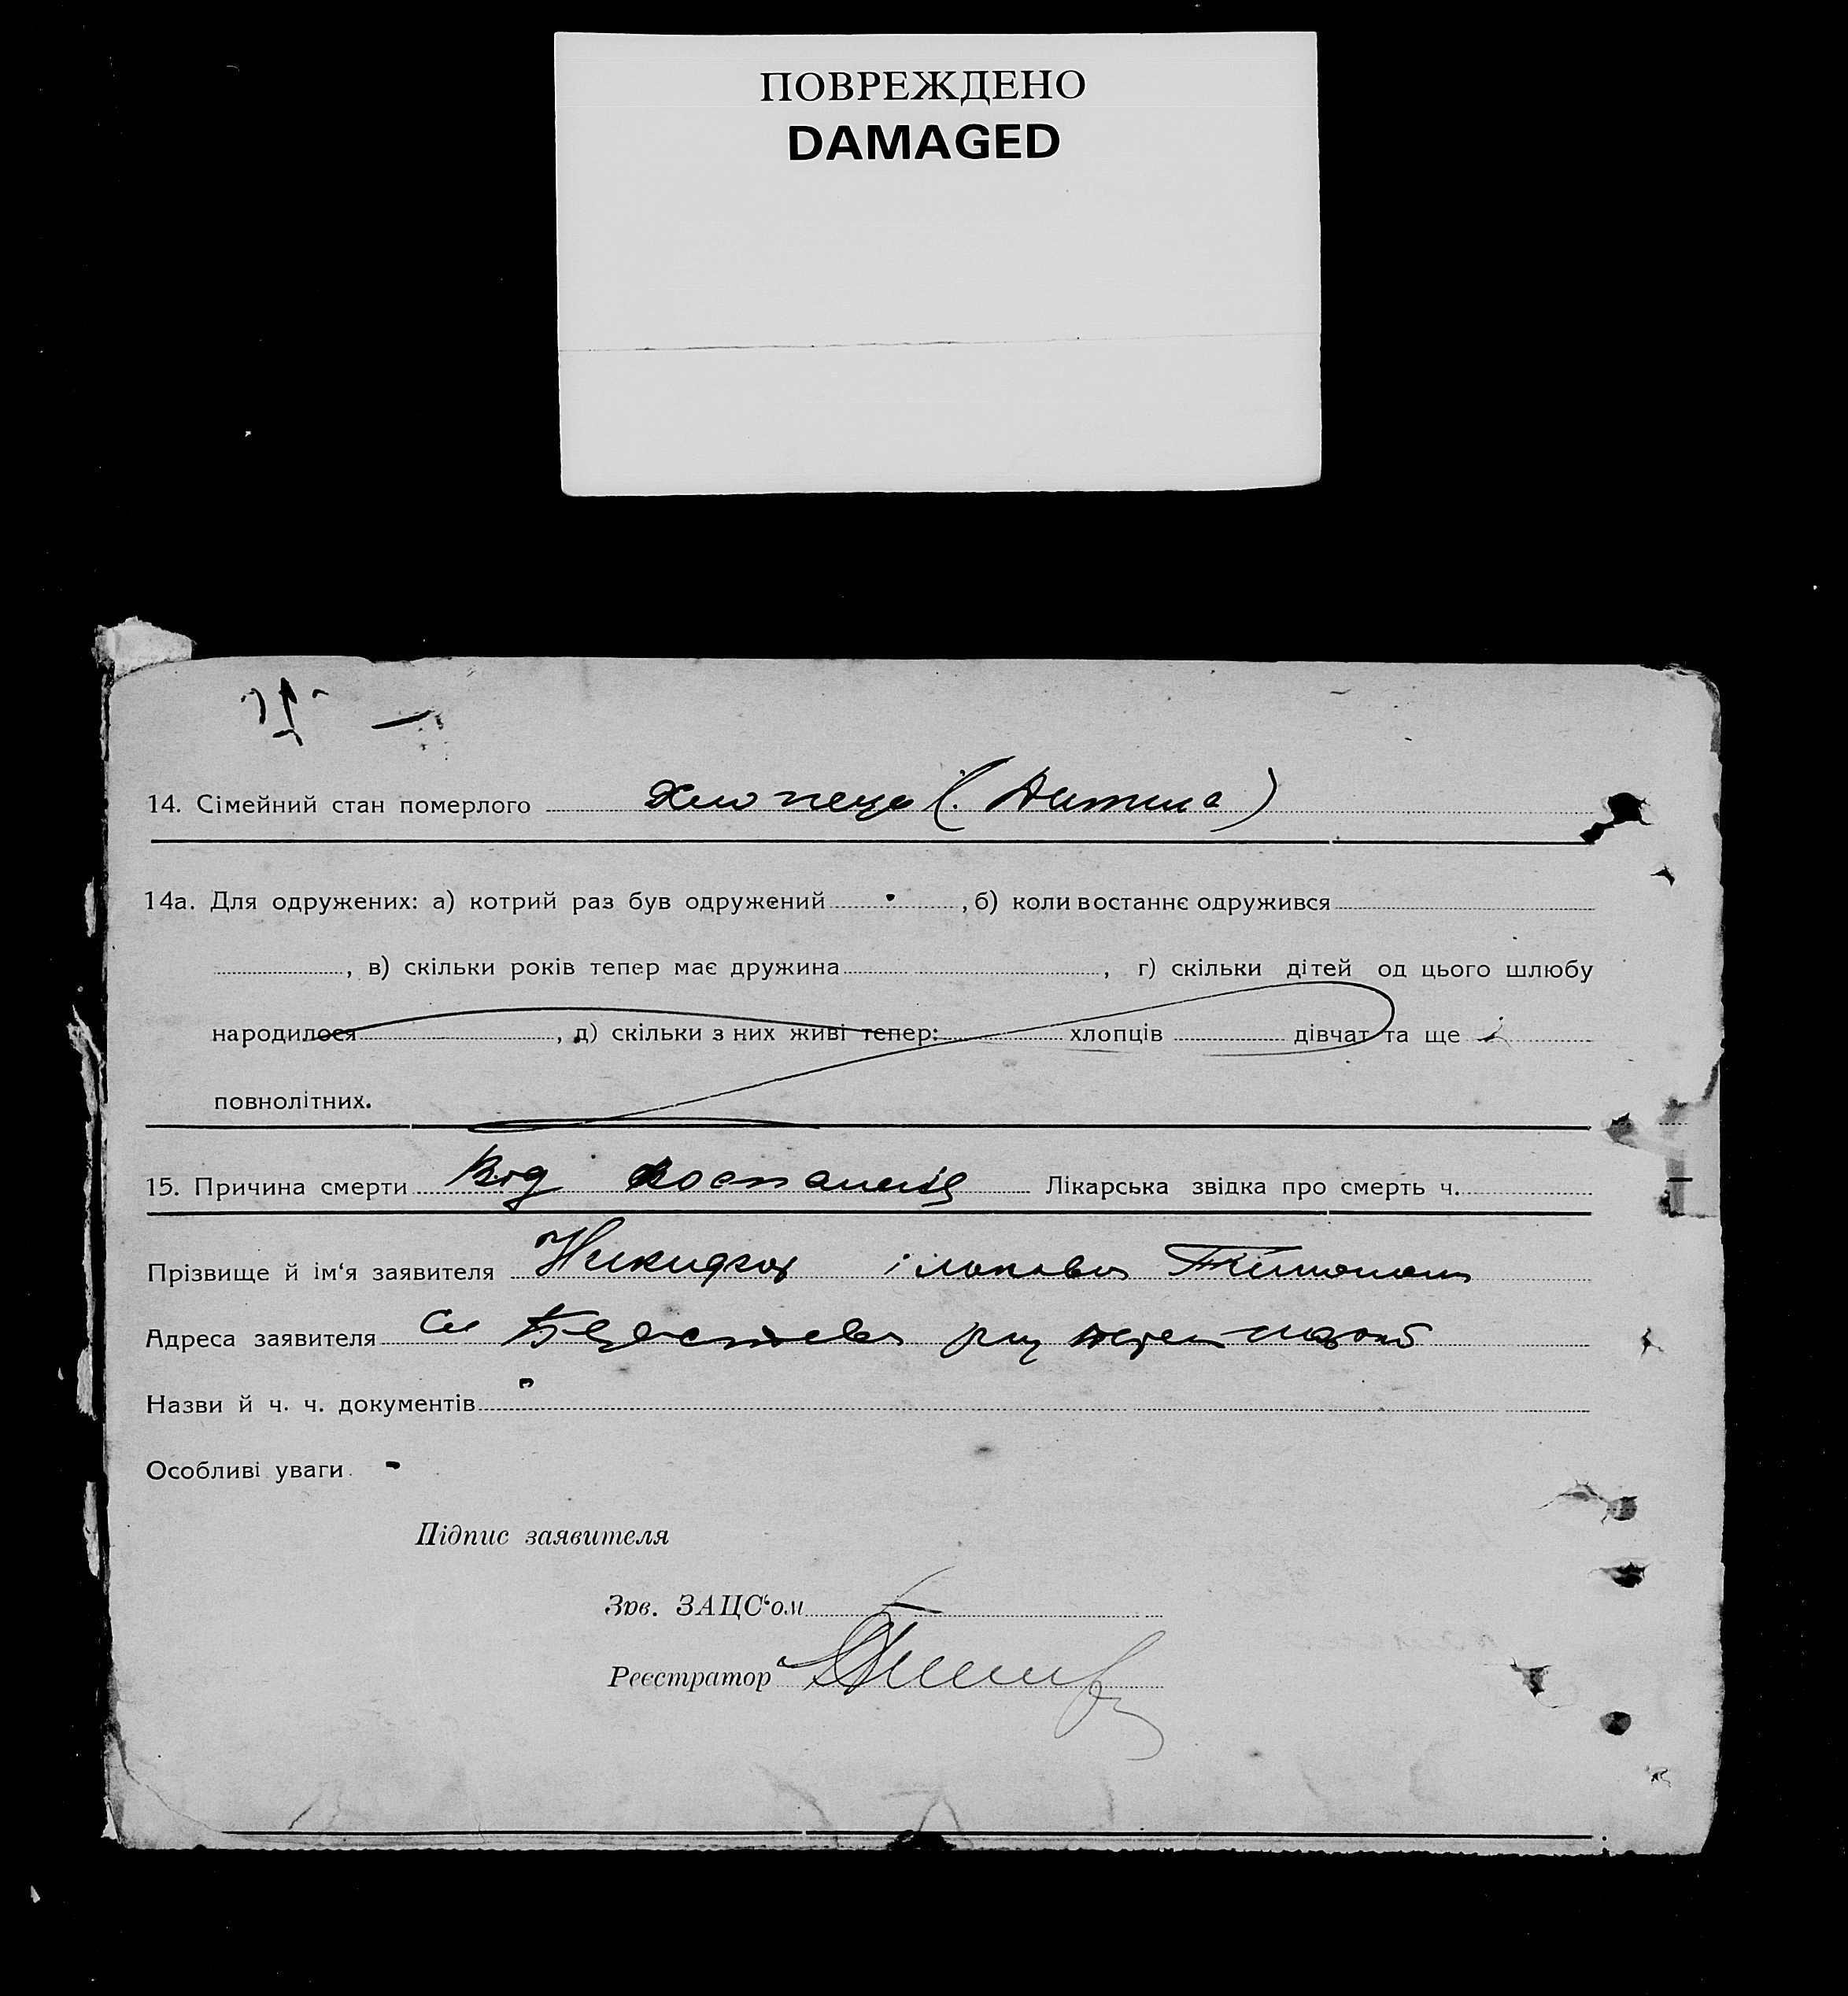 ПОВРЕЖДЕНО
DAMAGED
14. Сімейний стан померлого Хлопець (Дитина)
14а. Для одружених: а) котрий раз був одружений , б) коли востаннє одружився
, в) скільки років тепер має дружина , г) скільки дітей од цього шлюбу
народилося , д) скільки з них живі тепер: хлопців дівчат та ще
повнолітних.
15. Причина смерти Від Лікарська звідка про смерть ч.
Прізвище й ім‘я заявителя Никифор
Адреса заявителя
Назви й ч. ч. документів
Особливі уваги.
Підпис заявителя
Зав. ЗАЦС‘ом
Реєстратор